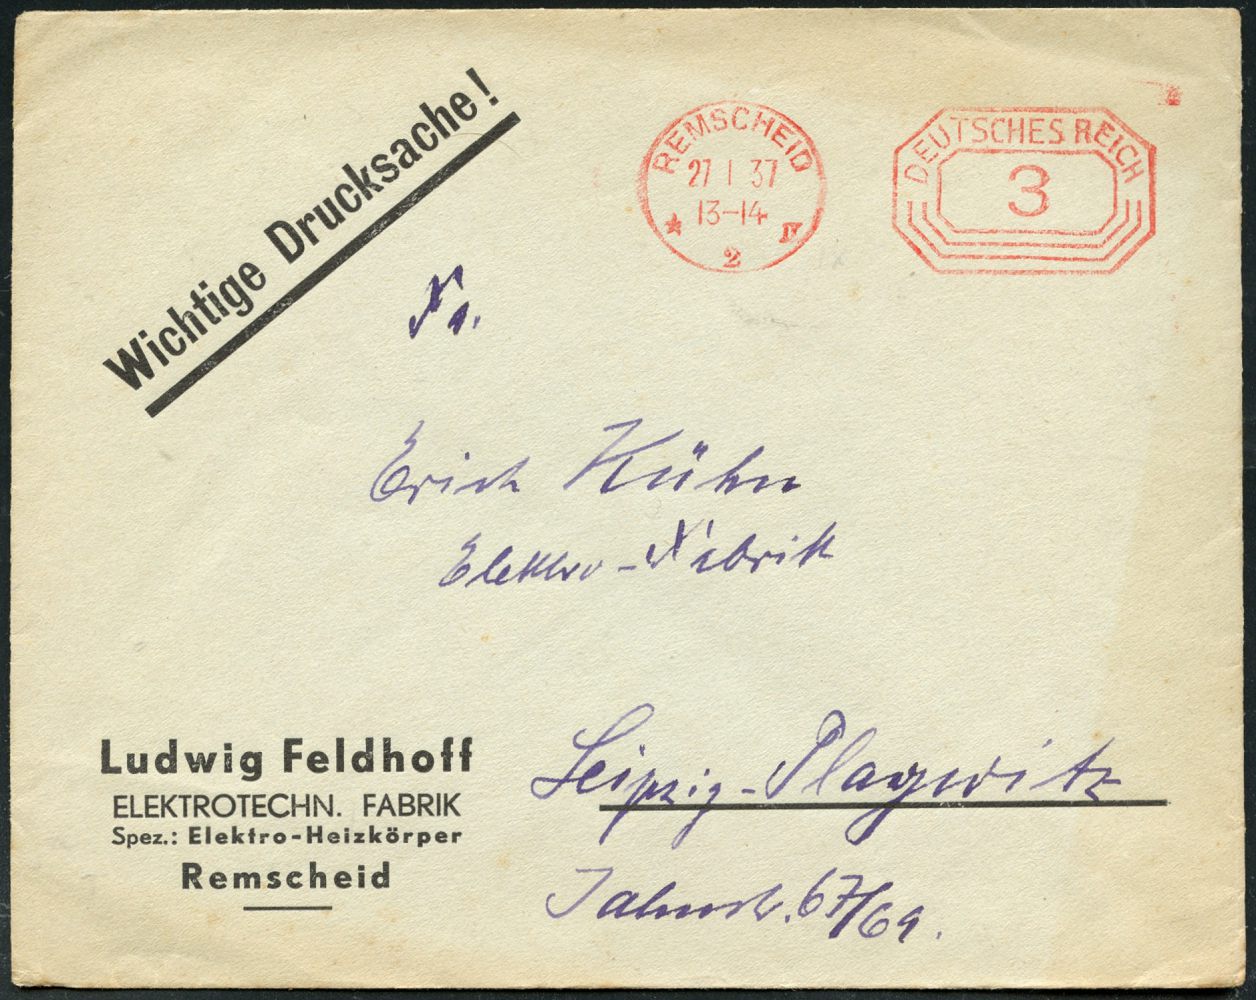 Wichtige Drucksache!
REMSCHEID
27 1 37
13-14
* IV
2
DEUTSCHES REICH
3
Fa.
Erich Kühn
Elektro-Fabrik
Leipzig-Plagwitz
Jahnstr. 67/69.
Ludwig Feldhoff
ELEKTROTECHN. FABRIK
Spez.: Elektro-Heizkörper
Remscheid